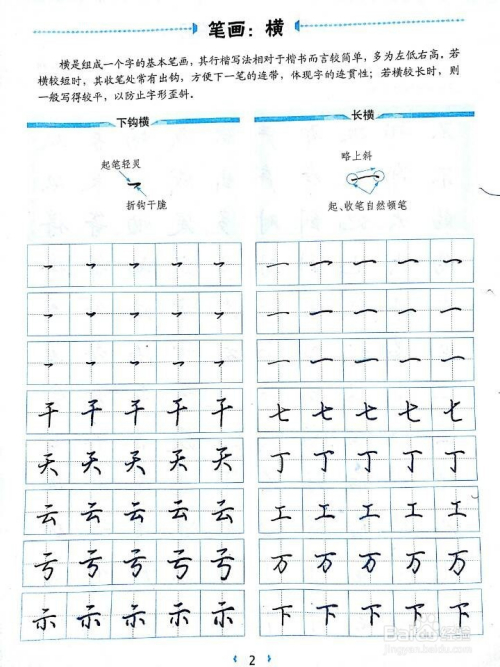 笔画：横
横是组成一个字的基本笔画，其行楷写法相对于楷书而言较简单，多为左低右高。若
横较短时，其收笔处常有出钩，方便下一笔的连带，体现字的连贯性；若横较长时，则
一般写得较平，以防止字形歪斜。
下钩横
起笔轻灵
折钩干脆
一 一 一 一 一
一 一 一 一 一
一 一 一 一 一
干 干 干 干 干
天 天 天 天 天
云 云 云 云 云
亏 亏 亏 亏 亏
示 示 示 示 示
长横
略上斜
起、收笔自然顿笔
一 一 一 一 一
一 一 一 一 一
一 一 一 一 一
七 七 七 七 七
丁 丁 丁 丁 丁
工 工 工 工 工
万 万 万 万 万
下 下 下 下 下
2
Baidu经验
jingyan.baidu.com